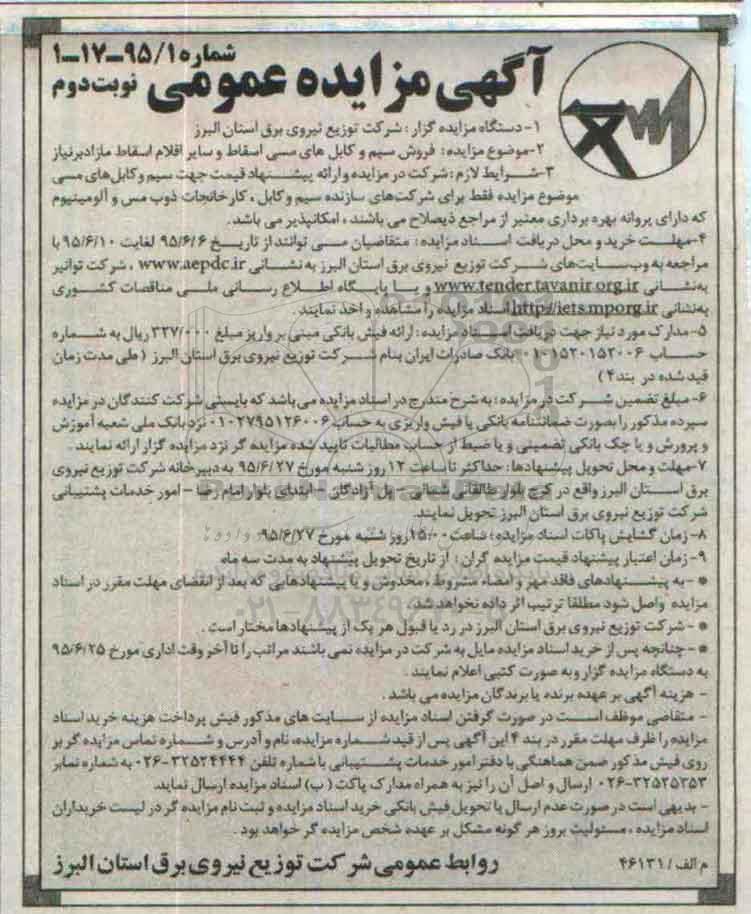 شماره ۹۵/۱-۱۷-۱
آگهی مزایده عمومی
نوبت دوم
۱- دستگاه مزایده گزار: شرکت توزیع نیروی برق استان البرز
۲-موضوع مزایده: فروش سیم و کابل های مسی اسقاط و سایر اقلام اسقاط مازادبرنیاز
۳-شرایط لازم: شرکت در مزایده و ارائه پیشنهاد قیمت جهت سیم و کابل های مسی
موضوع مزایده فقط برای شرکت های سازنده سیم وکابل، کارخانجات ذوب مس و آلومینیوم
که دارای پروانه بهره برداری معتبر از مراجع ذیصلاح می باشند، امکانپذیر می باشد.
۴-مهلت خرید و محل دریافت اسناد مزایده: متقاضیان می توانند از تاریخ ۹۵/۶/۶ لغایت ۹۵/۶/۱۰ با
مراجعه به وب سایت های شرکت توزیع نیروی برق استان البرز به نشانی www.aepdc.ir، شرکت توانیر
به نشانی www.tender.tavanir.org.ir و یا پایگاه اطلاع رسانی ملی مناقصات کشوری
به نشانی http://iets.mporg.ir اسناد مزایده را مشاهده و اخذ نمایند.
۵-مدارک مورد نیاز جهت دریافت اسناد مزایده: ارائه فیش بانکی مبنی بر واریز مبلغ ۳۲۷/۰۰۰ ریال به شماره
حساب ۰۱۰۱۵۲۰۱۵۲۰۰۶ بانک صادرات ایران بنام شرکت توزیع نیروی برق استان البرز (طی مدت زمان
قید شده در بند۴)
۶-مبلغ تضمین شرکت در مزایده: به شرح مندرج در اسناد مزایده می باشد که بایستی شرکت کنندگان در مزایده
سپرده مذکور را بصورت ضمانتنامه بانکی یا فیش واریزی به حساب ۰۱۰۲۷۹۵۱۲۶۰۰۶ نزد بانک ملی شعبه آموزش
و پرورش و یا چک بانکی تضمینی و یا ضبط از حساب مطالبات تایید شده مزایده گر نزد مزایده گزار ارائه نمایند.
۷-مهلت و محل تحویل پیشنهادها: حداکثر تا ساعت ۱۲ روز شنبه مورخ ۹۵/۶/۲۷ به دبیرخانه شرکت توزیع نیروی
برق استان البرز واقع در کرج بلوار طالقانی شمالی - پل آزادگان - ابتدای بلوار امام رضا - امور خدمات پشتیبانی
شرکت توزیع نیروی برق استان البرز تحویل نمایند.
۸- زمان گشایش پاکات اسناد مزایده: ساعت ۱۵:۰۰ روز شنبه مورخ ۹۵/۶/۲۷
۹- زمان اعتبار پیشنهاد قیمت مزایده گران: از تاریخ تحویل پیشنهاد به مدت سه ماه
* -به پیشنهادهای فاقد مهر و امضاء مشروط، مخدوش و یا پیشنهادهایی که بعد از انقضای مهلت مقرر در اسناد
مزایده واصل شود مطلقا ترتیب اثر داده نخواهد شد.
* -شرکت توزیع نیروی برق استان البرز در رد یا قبول هر یک از پیشنهادها مختار است.
* -چنانچه پس از خرید اسناد مزایده مایل به شرکت در مزایده نمی باشند مراتب را تا آخر وقت اداری مورخ ۹۵/۶/۲۵
به دستگاه مزایده گزار و به صورت کتبی اعلام نمایند.
- هزینه آگهی بر عهده برنده یا برندگان مزایده می باشد.
- متقاضی موظف است در صورت گرفتن اسناد مزایده از سایت های مذکور فیش پرداخت هزینه خرید اسناد
مزایده را ظرف مهلت مقرر در بند ۴ این آگهی پس از قید شماره مزایده، نام و آدرس و شماره تماس مزایده گر بر
روی فیش مذکور ضمن هماهنگی با دفتر امور خدمات پشتیبانی با شماره تلفن ۳۲۵۲۴۴۴۴-۰۲۶ به شماره نمابر
۳۲۵۲۵۲۵۳-۰۲۶ ارسال و اصل آن را نیز به همراه مدارک پاکت (ب) اسناد مزایده ارسال نماید.
- بدیهی است در صورت عدم ارسال یا تحویل فیش بانکی خرید اسناد مزایده و ثبت نام مزایده گر در لیست خریداران
اسناد مزایده، مسئولیت بروز هر گونه مشکل بر عهده شخص مزایده گر خواهد بود.
م الف / ۴۶۱۳۱
روابط عمومی شرکت توزیع نیروی برق استان البرز